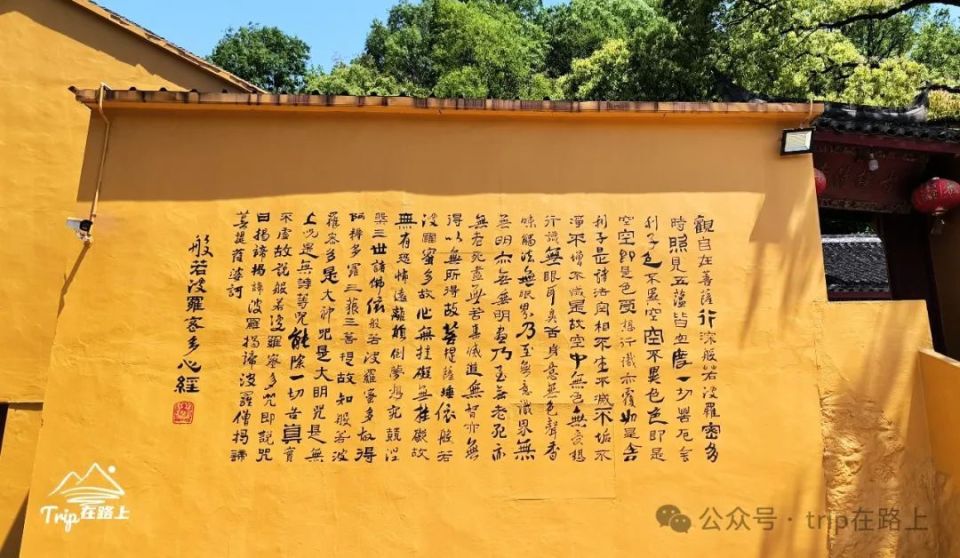 觀自在菩薩行深般若波羅密多
時照見五蘊皆空度一切苦厄舍
利子色不異空空不異色色即是
空空即是色受想行識亦復如是舍
利子是諸法空相不生不滅不垢不
淨不增不減是故空中無色無受想
行識無眼耳鼻舌身意無色聲香
味觸法無眼界乃至無意識界無
無明亦無無明盡乃至無老死亦
無老死盡無苦集滅道無智亦無
得以無所得故菩提薩埵依般若
波羅蜜多故心無挂礙無挂礙故
無有恐怖遠離顛倒夢想究竟涅
槃三世諸佛依般若波羅蜜多故得
阿耨多羅三藐三菩提故知般若波
羅密多是大神咒是大明咒是無
上咒是無等等咒能除一切苦真實
不虛故說般若波羅密多咒即說咒
曰揭諦揭諦波羅揭諦波羅僧揭諦
菩提薩婆訶
般若波羅密多心經
Trip在路上
公众号·trip在路上